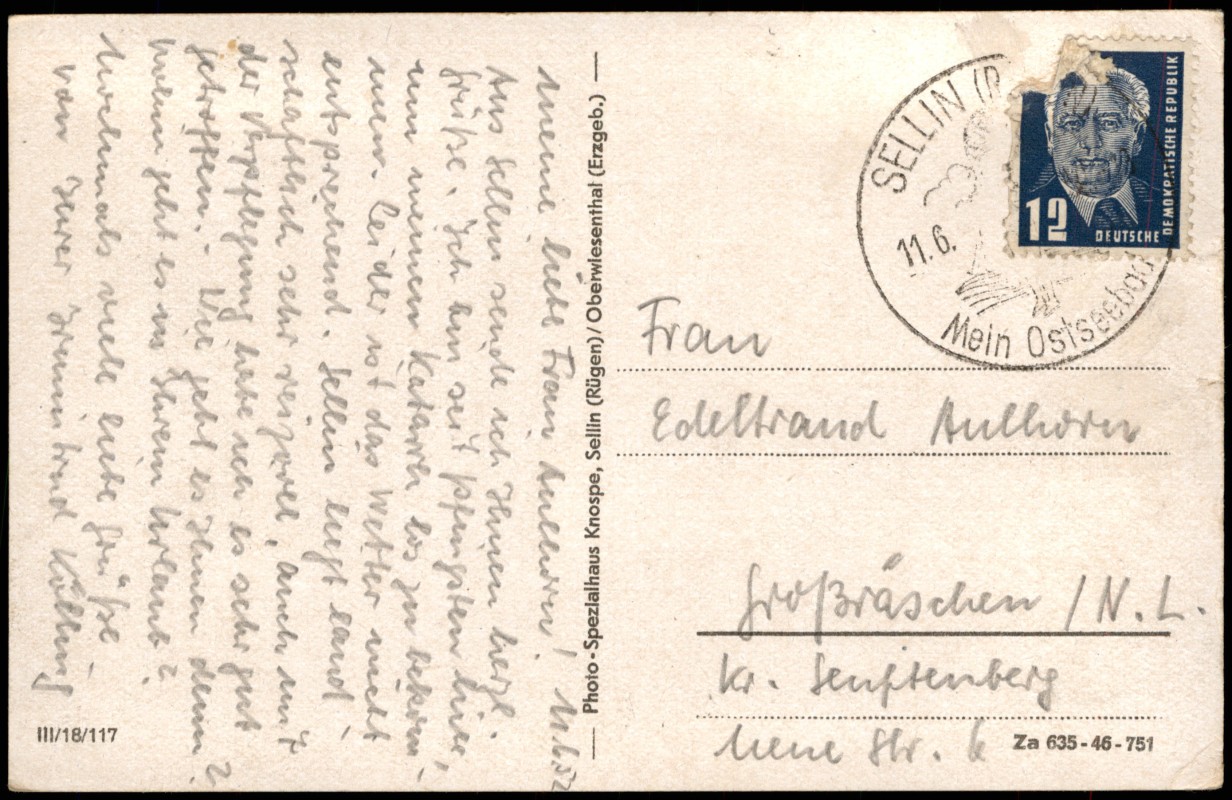 Meine liebe Frau Aulhorn! 11.6.52
Aus Sellin sende ich Ihnen herzl.
Grüße. Ich bin seit Pfingsten hier,
um meinen Katarrh los zu bekom-
men. Leider ist das Wetter nicht
entsprechend. Sellin liegt land-
schaftlich sehr reizvoll, auch mit
der Verpflegung habe ich es sehr gut
getroffen. Wie geht es Ihnen denn?
Wann geht es in Ihren Urlaub?
Nochmals viele liebe Grüße
von Ihrer Irmintrud Kölling
Photo-Spezialhaus Knospe, Sellin (Rügen)/Oberwiesenthal (Erzgeb.)
III/18/117
SELLIN (R
11.6.
Mein Ostseebad
12
DEUTSCHE
DEMOKRATISCHE REPUBLIK
Frau
Edeltraud Aulhorn
Großräschen /N.L.
Kr. Senftenberg
Neue Str. 6
Za 635-46-751